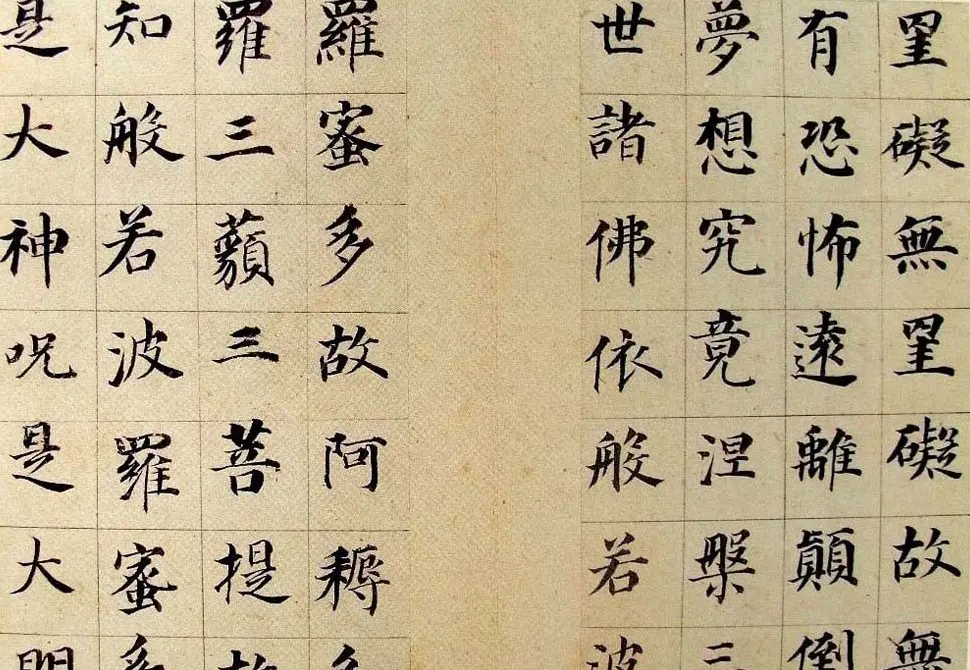 罣礙無罣礙故無
有恐怖遠離顛倒
夢想究竟涅槃三
世諸佛依般若波
羅蜜多故阿耨多
羅三藐三菩提故
知般若波羅蜜多
是大神呪是大明